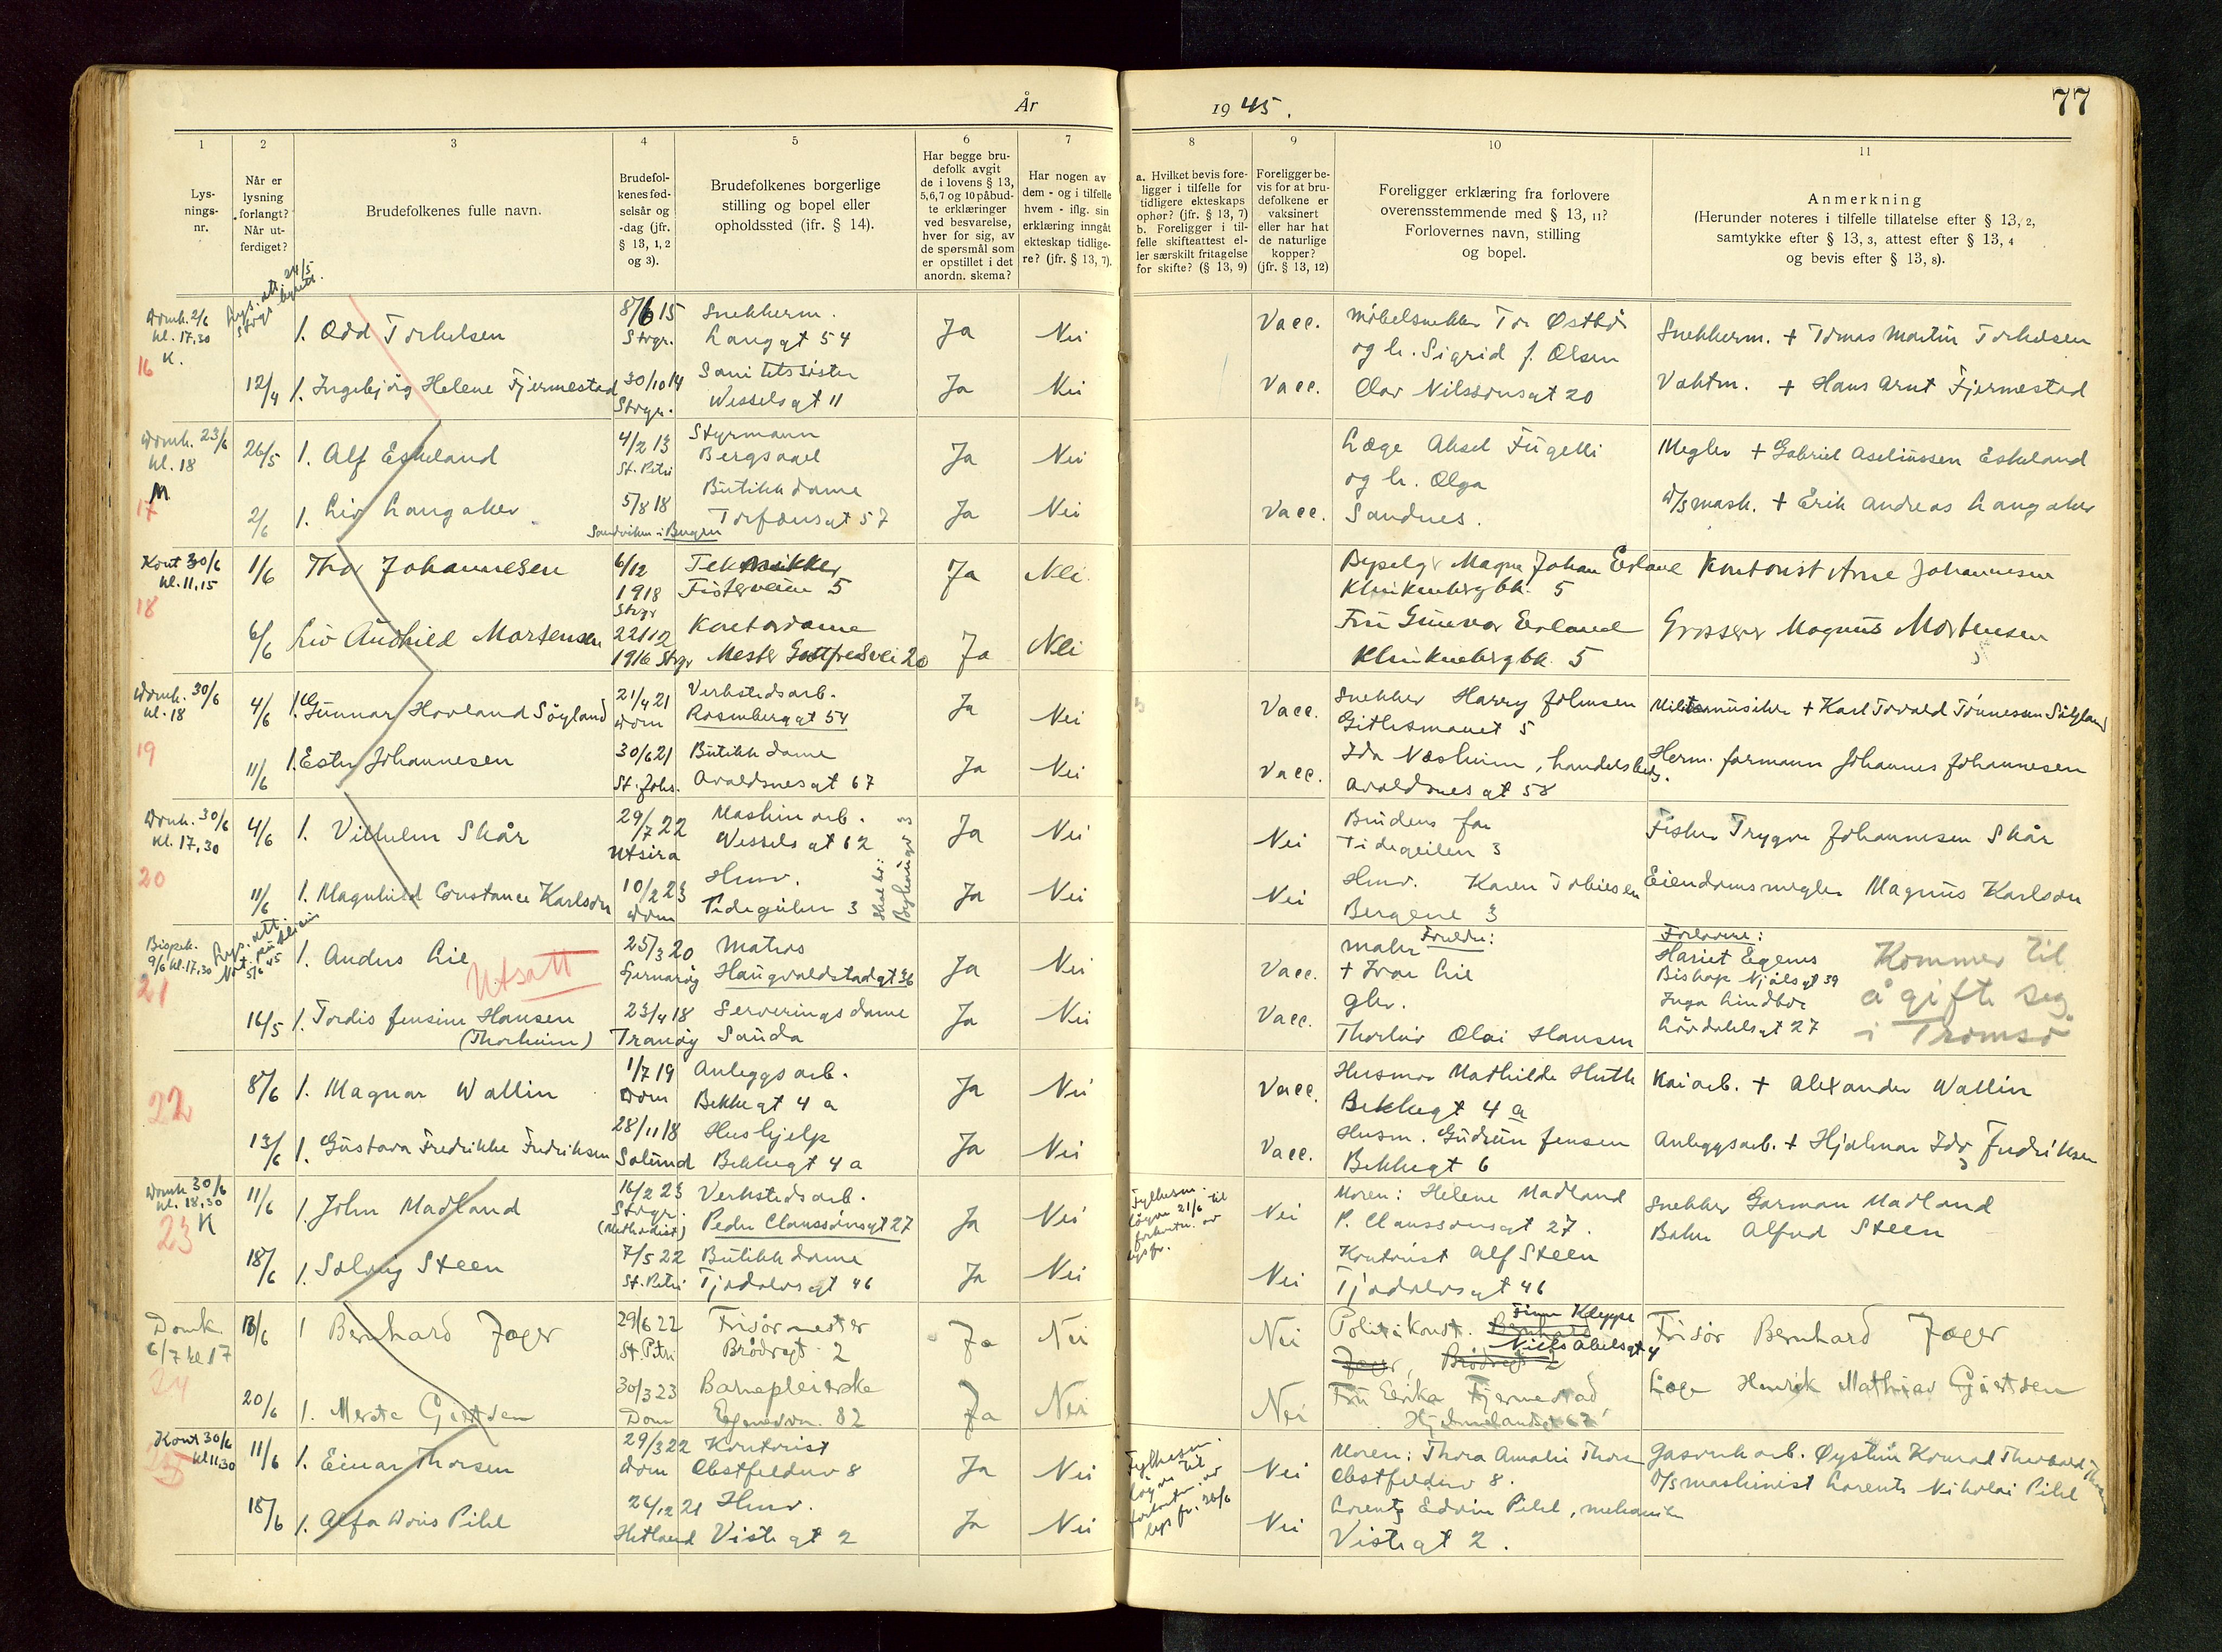 År
19 45.
77
1
Lys-
nings-
nr.
2
Når er
lysning
forlangt?
Når ut-
ferdiget?
3
Brudefolkenes fulle navn.
4
Brudefol-
kenes fød-
selsår og
-dag (jfr.
§ 13, 1, 2
og 3).
5
Brudefolkenes borgerlige
stilling og bopel eller
opholdssted (jfr. § 14).
6
Har begge bru-
defolk avgit
de i lovens § 13,
5, 6, 7 og 10 påbud-
te erklæringer
ved besvarelse,
hver for sig, av
de spørsmål som
er opstillet i det
anordn. skema?
7
Har nogen av
dem - og i tilfelle
hvem - iflg. sin
erklæring inngåt
ekteskap tidlige-
re? (jfr. § 13, 7).
8
a. Hvilket bevis fore-
ligger i tilfelle for
tidligere ekteskaps
ophør? (jfr. § 13, 7)
b. Foreligger i til-
felle skifteattest el-
ler særskilt fritagelse
for skifte? (§ 13, 9)
9
Foreligger be-
vis for at bru-
defolkene er
vaksinert
eller har hat
de naturlige
kopper?
(jfr. § 13, 12)
10
Foreligger erklæring fra forlovere
overensstemmende med § 13, 11?
Forlovernes navn, stilling
og bopel.
11
Anmerkning
(Herunder noteres i tilfelle tillatelse efter § 13, 2,
samtykke efter § 13, 3, attest efter § 13, 4
og bevis efter § 13, 8).
Domk. 2/6
kl. 17,30
K.
16
Lys. att. 24/5
1. Odd Torkelsen
8/6 15
Stvgr.
Snekkerm.
Langgt 54
Ja
Nei
Vacc.
Møbelsnekker Tor Østbø
og h. Sigrid f. Olsen
Snekkerm. + Tomas Martin Torkelsen
12/4
1. Ingebjørg Helene Fjermestad
30/10 14
Stvgr.
Sanitetssister
Wesselsgt 11
Ja
Nei
Vacc.
Olav Nilssønsgt 20
Vaktm. + Hans Arnt Fjermestad
Domk. 23/6
kl. 18
M
17
26/5
1. Alf Eskeland
4/2 13
St. Petri
Styrmann
Bergsagel
Ja
Nei
Læge Aksel Fugelli
og h. Olga
Megler + Gabriel Aseliussen Eskeland
2/6
1. Liv Langaker
5/8 18
Sandviken i Bergen
Butikkdame
Torfæusgt 57
Ja
Nei
Vacc.
Sandnes.
D/S mask. + Erik Andreas Langaker
Kont 30/6
kl. 11,15
18
1/6
Thor Johannesen
6/12
1918
Stvgr
Tekniker
Fisterveien 5
Ja
Nei
Magne Johan Erland
Klinkenbergbk. 5
Kontorist Arne Johannesen
6/6
Liv Audhild Mortensen
22/12
1916 Stvgr
Kontordame
Mester Gottfredsvei 20
Ja
Nei
Fru Gunvor Erland
Klinkenbergbk. 5
Grosserer Magnus Mortensen
Domk. 30/6
kl. 18
19
4/6
1. Gunnar Hovland Søyland
21/4 21
Dom
Verkstedsarb.
Rosenberggt 54
Ja
Nei
Vacc.
Snekker Harry Johnsen
Gitlesmauet 5
Militærmusiker + Karl Torvald Tønnesen Søyland
11/6
1. Ester Johannesen
30/6 21
St. Johs.
Butikkdame
Avaldsnesgt 67
Ja
Nei
Vacc.
Ida Næsheim, handelsbetj.
Avaldsnesgt 58
Herm. formann Johannes Johannesen
Domk. 30/6
kl. 17,30
20
4/6
1. Vilhelm Skår
29/7 22
Utsira
Maskinarb.
Wesselsgt 62
Ja
Nei
Nei
Brudens far
Tidegeilen 3
Fisker Trygve Johannesen Skår
11/6
1. Magnhild Constance Karlsen
10/2 23
Dom
Husv.
Tidegeilen 3
Skal bo:
Byhaugv 3
Ja
Nei
Nei
Husv. Karen Tobiesen
Bergene 3
Eiendomsmegler Magnus Karlsen
Bispek.
9/6 kl. 17,30
21
1. Anders Lie
Utsatt
25/3 20
Matros
Haugvaldstadgt 36
Ja
Nei
Vacc.
Foreldre:
maler
+ Ivar Lie
Forlovere:
Hariet Egenes
Bishop Njålsgt 39
Inga Lindbo
Lövdahlsgt 27
Kommer til
å gifte seg
i Tromsø
16/5
1. Tordis Jensine Hansen
(Thorheim)
23/4 18
Tranöy
Serveringsdame
Sauda
Ja
Nei
Vacc.
gbr.
Thorleiv Olai Hansen
22
8/6
1. Magnar Wallin
1/7 19
Dom
Anleggsarb.
Bekkegt 4 a
Ja
Nei
Vacc.
Husmor Mathilde Huth
Bekkegt 4 a
Kaiarb. + Alexander Wallin
13/6
1. Gustava Fredrikke Fredriksen
28/11 18
Solund
Hushjelp
Bekkegt 4 a
Ja
Nei
Vacc.
Husm. Gudrun Jensen
Bekkegt 6
Anleggsarb. + Hjalmar Idv Fredriksen
Domk 30/6
kl. 18,30
23 K
11/6
1. John Madland
16/2 23
Stvgr.
(Methodist)
Verkstedsarb.
Peder Claussønsgt 27
Ja
Nei
Nei
Moren: Helene Madland
P. Claussønsgt 27.
Snekker Garman Madland
18/6
1. Solveig Steen
7/5 22
St. Petri
Butikkdame
Tjodolvsgt 46
Ja
Nei
Nei
Kontorist Alf Steen
Tjodolvsgt 46
Baker Alfred Steen
Domk.
6/7 kl 17
24
13/6
1 Bernhard Jæger
29/6 22
St. Petri
Frisørmester
Brødregt 2
Ja
Nei
Nei
Politikonst. Finn Kleppe
Niels Abelsgt 4
Frisør Bernhard Jæger
20/6
1. Merete Giertsen
30/3 23
Dom
Barnepleierske
Egenesvn. 82
Ja
Nei
Nei
Fru Erika Fjermestad
Hjelmelandsgt 62
Læge Henrik Mathias Giertsen
Kont 30/6
kl 11,30
25
11/6
1. Einar Thorsen
29/3 22
Dom
Kontorist
Obstfelderv 8
Ja
Nei
Nei
Moren: Thora Amalie Thorsen
Obstfelderv 8.
Gasverkarb. Øystein Konrad Theobald Thorsen
18/6
1. Alfa Doris Pihl
26/12 21
Hetland
Husv.
Vistegt 2
Ja
Nei
Nei
Lorentz Edvin Pihl, mekaniker
Vistegt 2.
D/S maskinist Lorents Nikolai Pihl